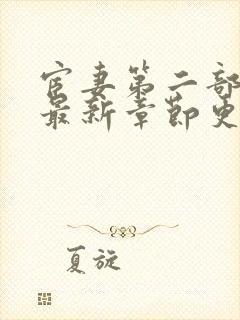 宦妻第二部
最新章节更
夏旋